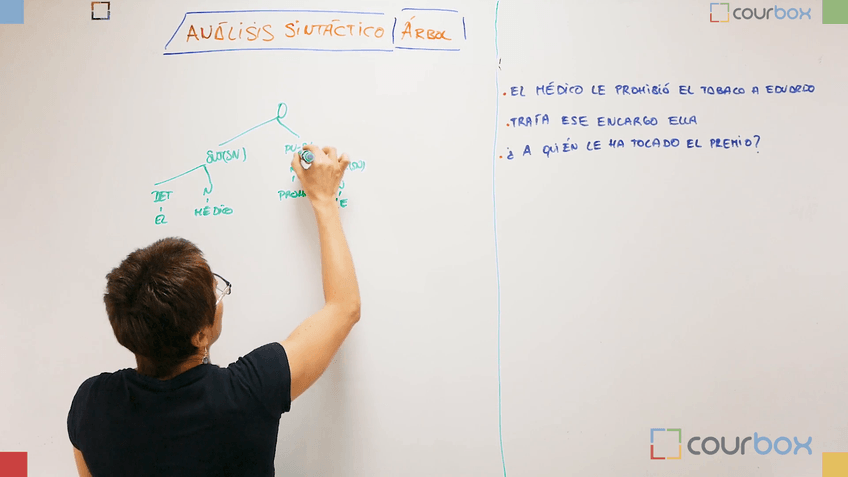 courbox
ANÁLISIS SINTÁCTICO ÁRBOL
. EL MÉDICO LE PROHIBIÓ EL TOBACO A EDUARDO
. TRAFA ESE ENCARGO ELLA
. ¿A QUIÉN LE HA TOCADO EL PREMIO?
O
SUJ(SN)
DET N
EL MÉDICO
courbox